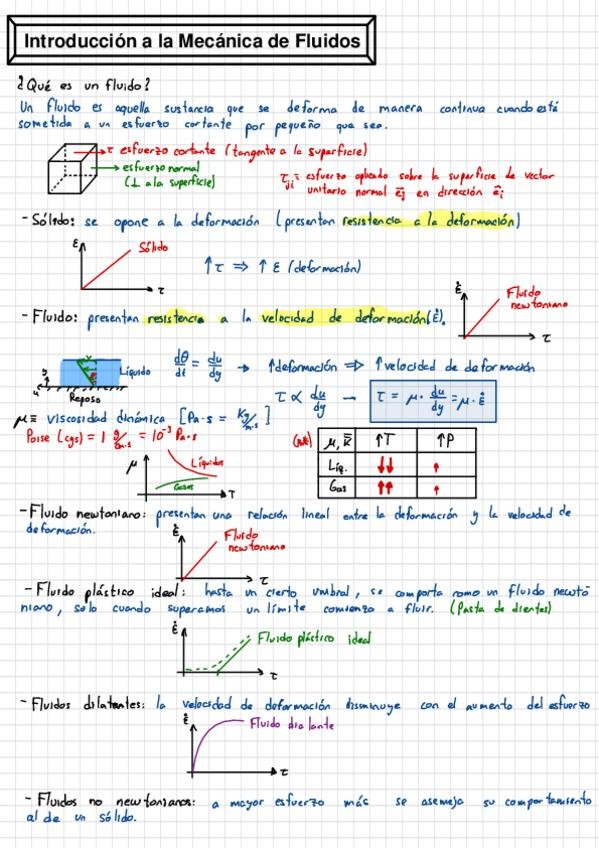 Introducción a la Mecánica de Fluidos
¿Qué es un fluido?
Un fluido es aquella sustancia que se deforma de manera continua cuando está
sometida a un esfuerzo cortante por pequeño que sea.
τ esfuerzo cortante (tangente a la superficie)
esfuerzo normal
(⊥ a la superficie)
τji = esfuerzo aplicado sobre la superficie de vector
unitario normal e⃗j en dirección e⃗i
- Sólido: se opone a la deformación (presentan resistencia a la deformación)
ε
Sólido
τ
↑τ ⇒ ↑ε (deformación)
- Fluido: presentan resistencia a la velocidad de deformación (ε̇).
ε̇
Fluido
newtoniano
τ
Líquido
Reposo
dθ/dt = du/dy → ↑deformación ⇒ ↑velocidad de deformación
τ ∝ du/dy → τ = μ · du/dy = μ · ε̇
μ ≡ viscosidad dinámica [Pa·s = Kg/m·s]
Poise (cgs) = 1 g/cm·s = 10⁻³ Pa·s
μ
Líquidos
Gases
τ
μ, k̿ ↑T ↑P
Líq. ↓↓ ↑
Gas ↑↑ ↑
- Fluido newtoniano: presentan una relación lineal entre la deformación y la velocidad de
deformación.
ε̇
Fluido
newtoniano
τ
- Fluido plástico ideal: hasta un cierto umbral, se comporta como un fluido newto-
niano, solo cuando superamos un límite comienza a fluir. (Pasta de dientes)
ε̇
Fluido plástico ideal
τ
- Fluidos dilatantes: la velocidad de deformación disminuye con el aumento del esfuerzo
ε̇
Fluido dialante
τ
- Fluidos no newtonianos: a mayor esfuerzo más se asemeja su comportamiento
al de un sólido.